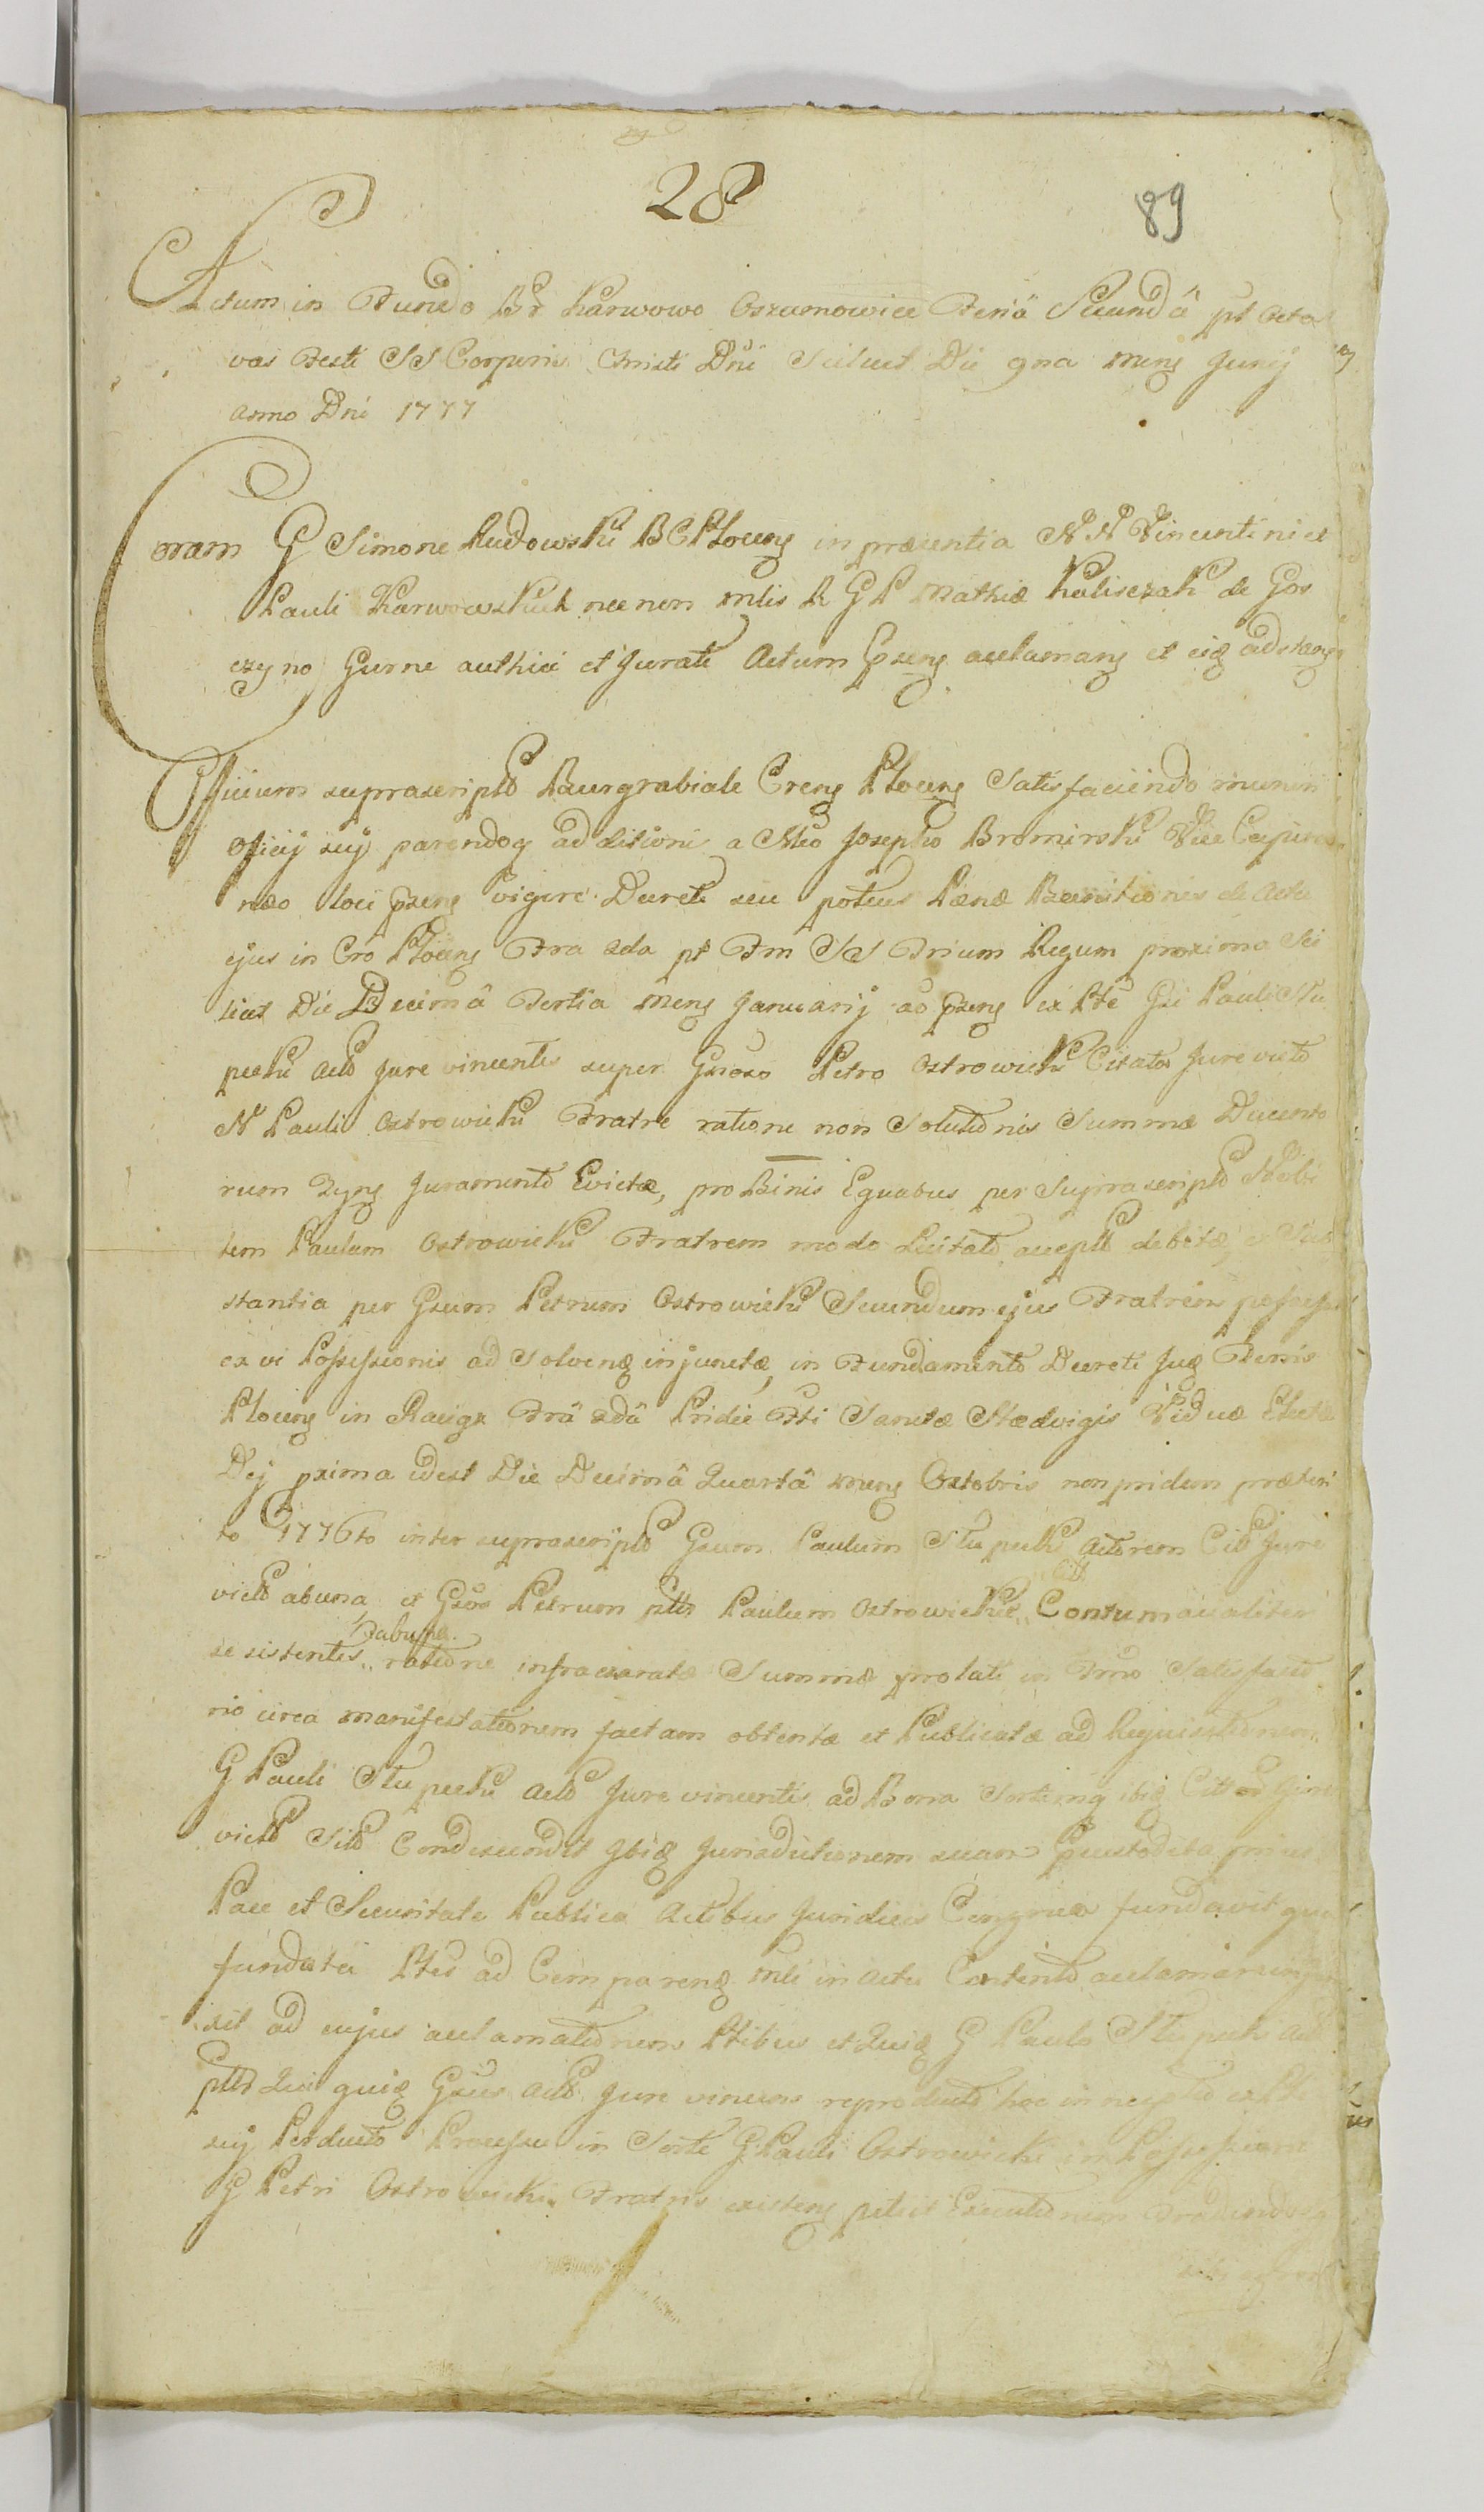 28
89
Actum in Fundo Br Karwowo Orszumowice Feriâ Secundâ pt Octa
vas Festi SS Corporis Christi Dni Scilicet Die 9na meng Junij
anno Dni 1777
Coram G Simone Rudowski BCPloceng in præsentia NN Vincentini et
Pauli Karwowskich necnon mlis R G P Mathiæ Kaliszak de Gos
czyno Gurne authici et Jurati Actum pseng acclamang et eiq adstang
Officium suprascriptō Burgrabiale Creng Ploceng Satisfaciendo muneri
officij sui parendoq ad disioni a Mco Josepho Bromirski Vice
neo loci pseng vigore Decreti seu potius Pænæ Bannitionis de Actu
ejus in Cro Ploceng Fra 2da pt Fm SS Trium Regum proxima Sci
licet Die Decimâ Tertia meng Januarij ao pseng ex Pte Gsi Pauli Stu
pecki Actō Jure vincentis super Gnoso Petro Ostrowicki Citato Jure victō
N Pauli Ostrowicki Fratre ratione non Solutionis Summæ Ducento
rum Tyng Juramentō Evictæ, pro Binis Equabus per Suprascriptō Nobi
lem Paulum Ostrowicki Fratrem modo Licitatō acceptō debitæ, e Sub
stantia per Gsum Petrum Ostrowicki Secundum ejus Fratrem possess
ex vi Possessionis ad Solvenq injunctæ, in Fundamentō Decreti Juq Terris
Ploceng in Raciąz Frâ 2dâ Pridie Fti Sanctæ Hædvigis Viduæ Electæ
Dej pxima idest Die Decimâ Quartâ meng Octobris non pridem præteri
to 1776to inter suprascriptō Gsum Paulum Stupecki Actorem Citō Jure
victō abuna, et Gsos Petrum ptto Paulum Ostrowickie Citt Contumacialiter
se sistentes Fabupa ratione infraexaratæ Summæ prolati in Fmo Satisfacto
rio circa manifestationem factam obtentæ et Publicatæ ad Requisitionem
G Pauli Stupecki Actō Jure vincentis ad Bona Sortemq ibiq Citt Jure
victō Sitō Condescendit Ibiq Jurisdictionem suam Custodita prius
Pace et Securitate Publica Actibus Juridicis Congrua fundavit qua
fundata Ptes ad Comparenq mli in Actu Contentō acclamari injun
xit ad cujus acclamationem Ptibus et Quiq G Paulo Stupecki Actō
pttō Qui quiq Gsus Actō Jure vincens reproducto hoc in negotio ex Pte
sui Perducto Processu in Sorte G Pauli Ostrowicki in Possessione
G Petri Ostrowicki Fratris existeng petiit Executionem